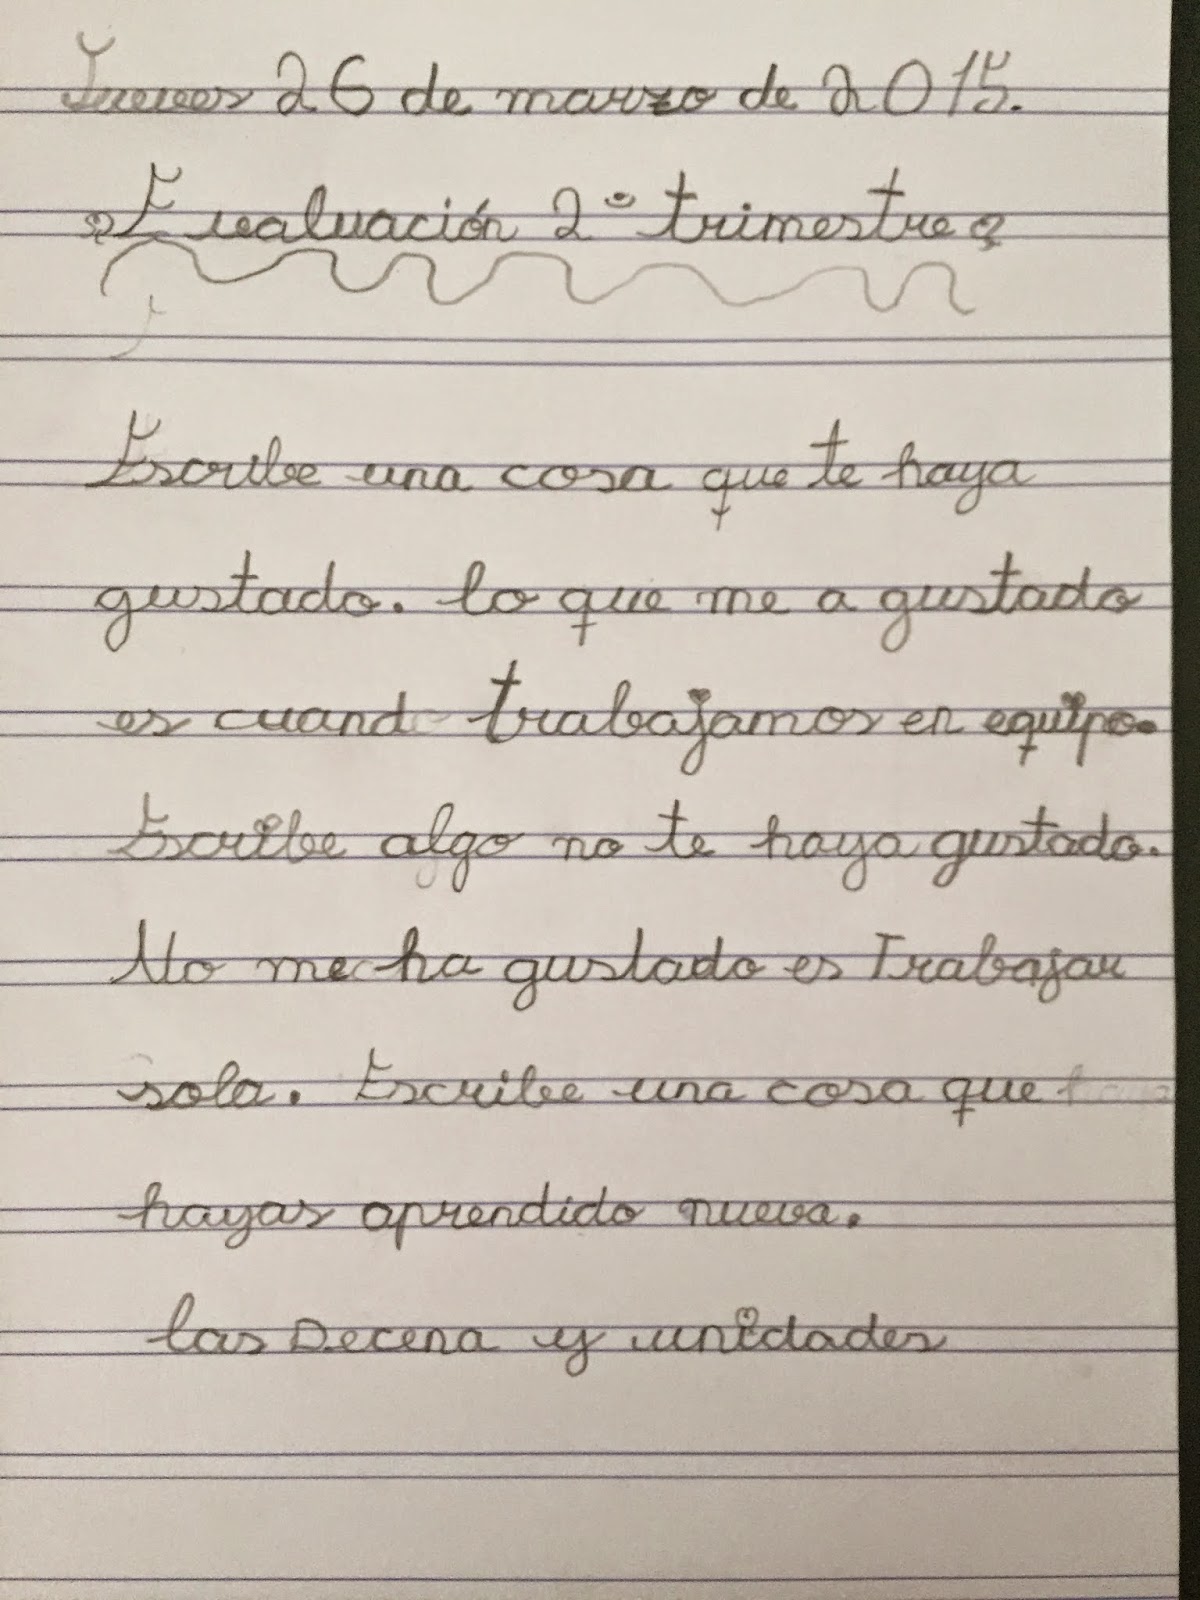 Jueves 26 de marzo de 2015.
Evaluación 2º trimestre
Escribe una cosa que te haya
gustado. lo que me a gustado
es cuando trabajamos en equipo.
Escribe algo no te haya gustado.
No me ha gustado es Trabajar
sola. Escribe una cosa que
hayas aprendido nueva.
las Decena y unidades